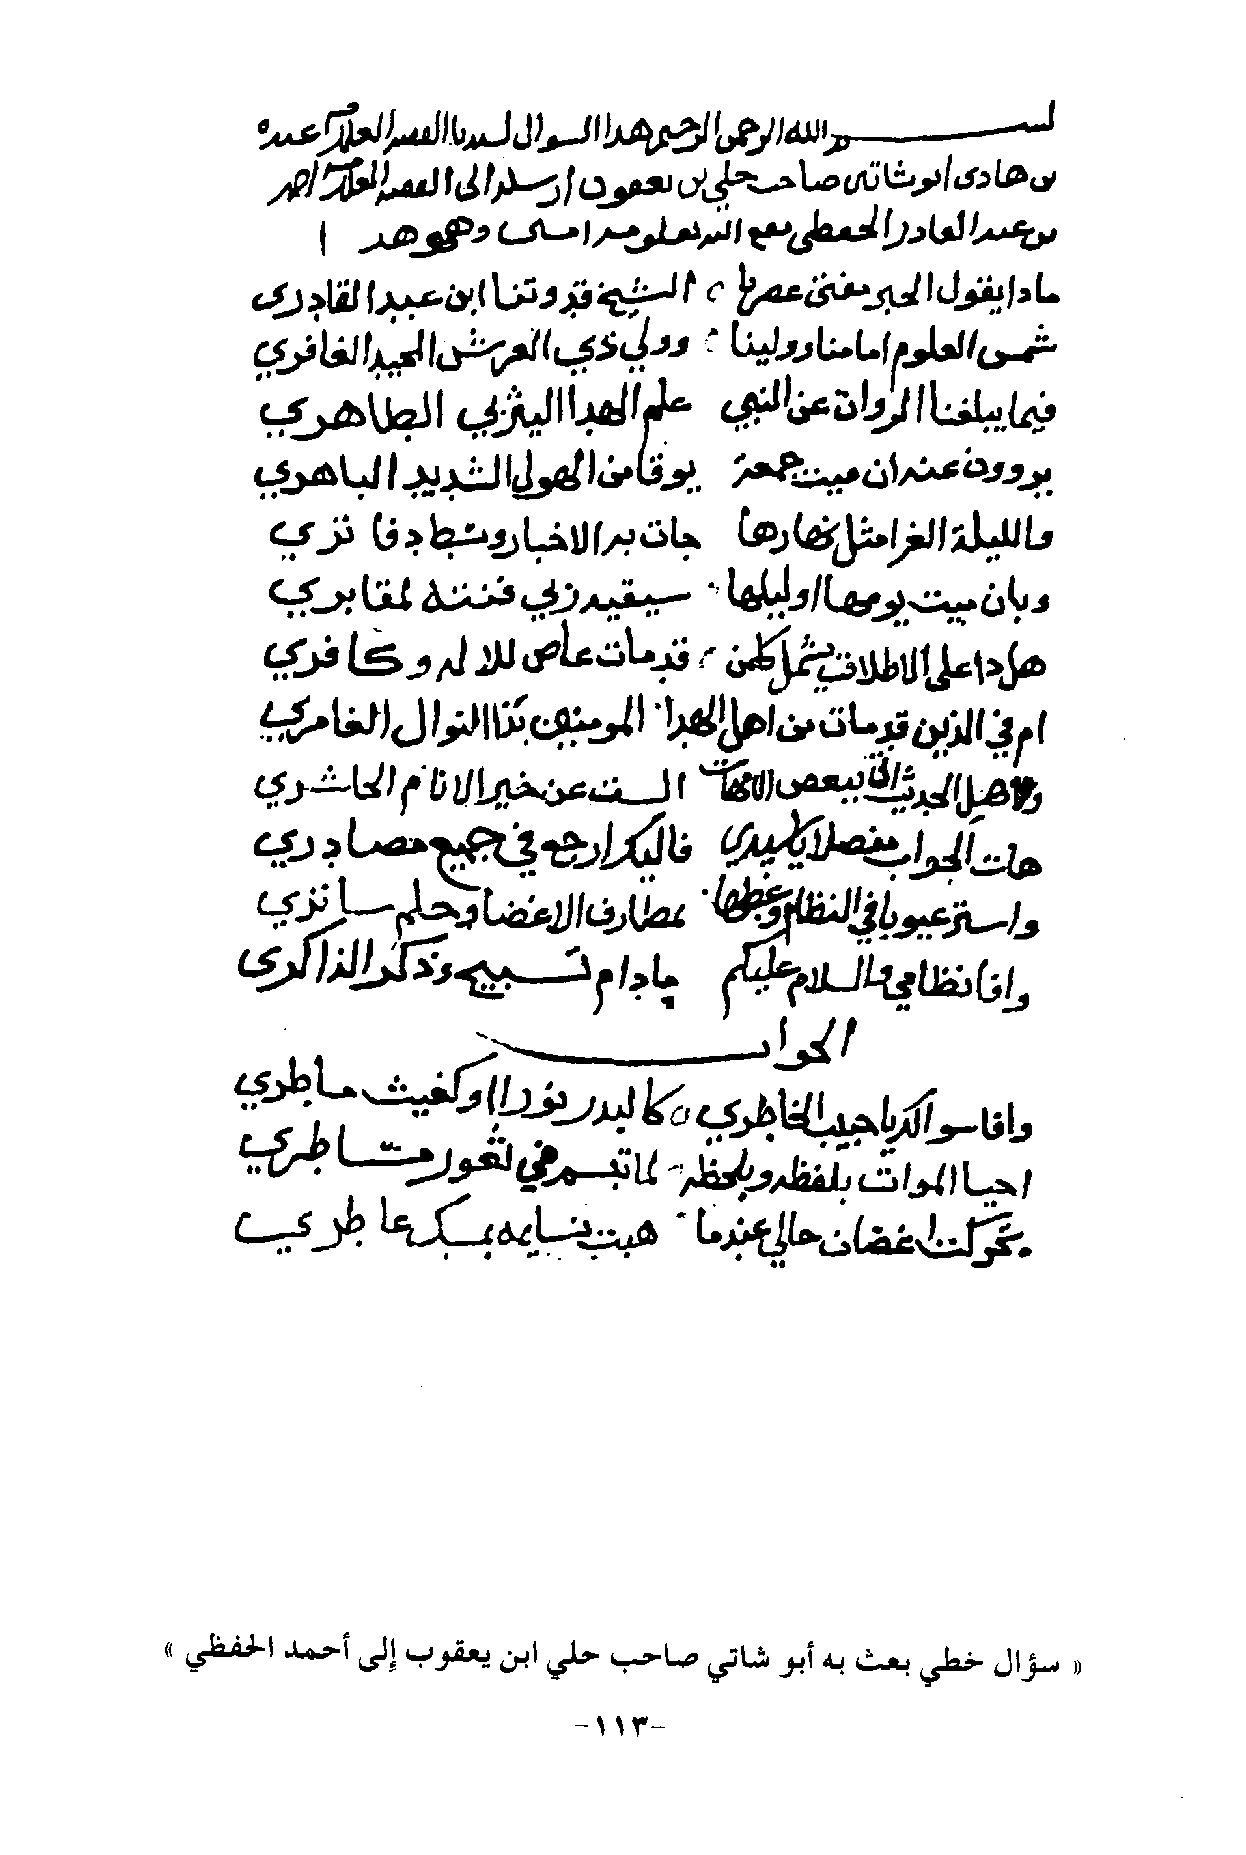 بسم الله الرحمن الرحيم هدا السوال لسيدنا الفقيه العلامة عبده
بن هادى ابوشاتى صاحب حلي بن يعقوب ارسله الى الفقيه العلامة احمد
بن عبد القادر الحفظي نفع الله بعلومه امين وهو هدا
مادا يقول الحبر مفتى عصرنا الشيخ قدوتنا ابن عبدالقادرى
شمس العلوم امامنا وولينا وولي ذي العرش المجيد الغافري
فيما يبلغنا الروات عن النبي علم الهدا اليثربي الطاهري
يروون عنه ان ميت جمعة يوقا من الهول الشديد الباهري
والليلة الغرا مثل نهارها جات به الاخبار وسط دفاتري
وبان ميت يومها اوليلها سيقيه ربي فتنة لمقابري
هل دا على الاطلاق يشمل كلمن قد مات عاص للاله وكافري
ام في الذين قد مات من اهل الهدا المومنين بذا النوال الغامري
الست عن خير الانام الحاشري
هات الجواب مفصلا ياسيدي فاليكم ارجع في جميع مصادري
واستر عيوبا في النظام وغطها بمطارف الاغضا وحلم ساتري
وافا نظامي والسلام عليكم مادام تسبيح وذكر الذاكرى
الجواب
وافا سوالك ياحبيب الخاطري كالبدر نورا اوكغيث ماطري
احيا الموات بلفظه وبلحظه لما تبسم في ثغور مشاطري
تحركت اغصان حالي عندما هبت نسايمه بمسك عاطري
« سؤال خطي بعث به أبو شاتي صاحب حلي ابن يعقوب إلى أحمد الحفظي »
-١١٣-